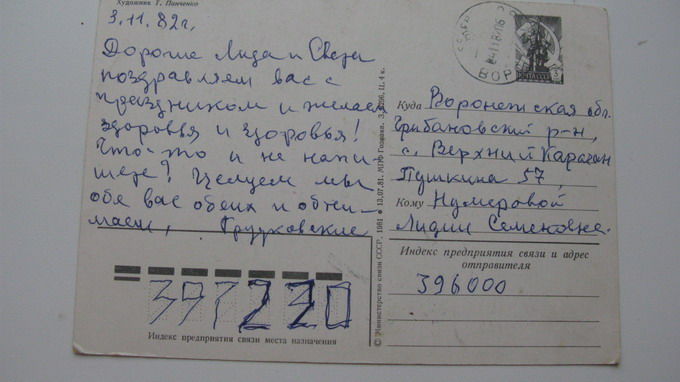 Художник Т. Панченко
3.11.82г.
Дорогие Лида и Света
поздравляем вас с
праздником и желаем
здоровья и здоровья!
Что-то и не напи-
шете? Целуем мы
обе вас обеих и обни-
маем,
Куда Воронежская обл.
Грибановский р-н,
с. Верхний Карачан
Пушкина 57,
Кому Нумеровой
Лидии Семеновне.
Индекс предприятия связи и адрес
отправителя
396000
397220
Индекс предприятия связи места назначения
© Министерство связи СССР, 1981 ● 13.07.81. МПФ Гознака.